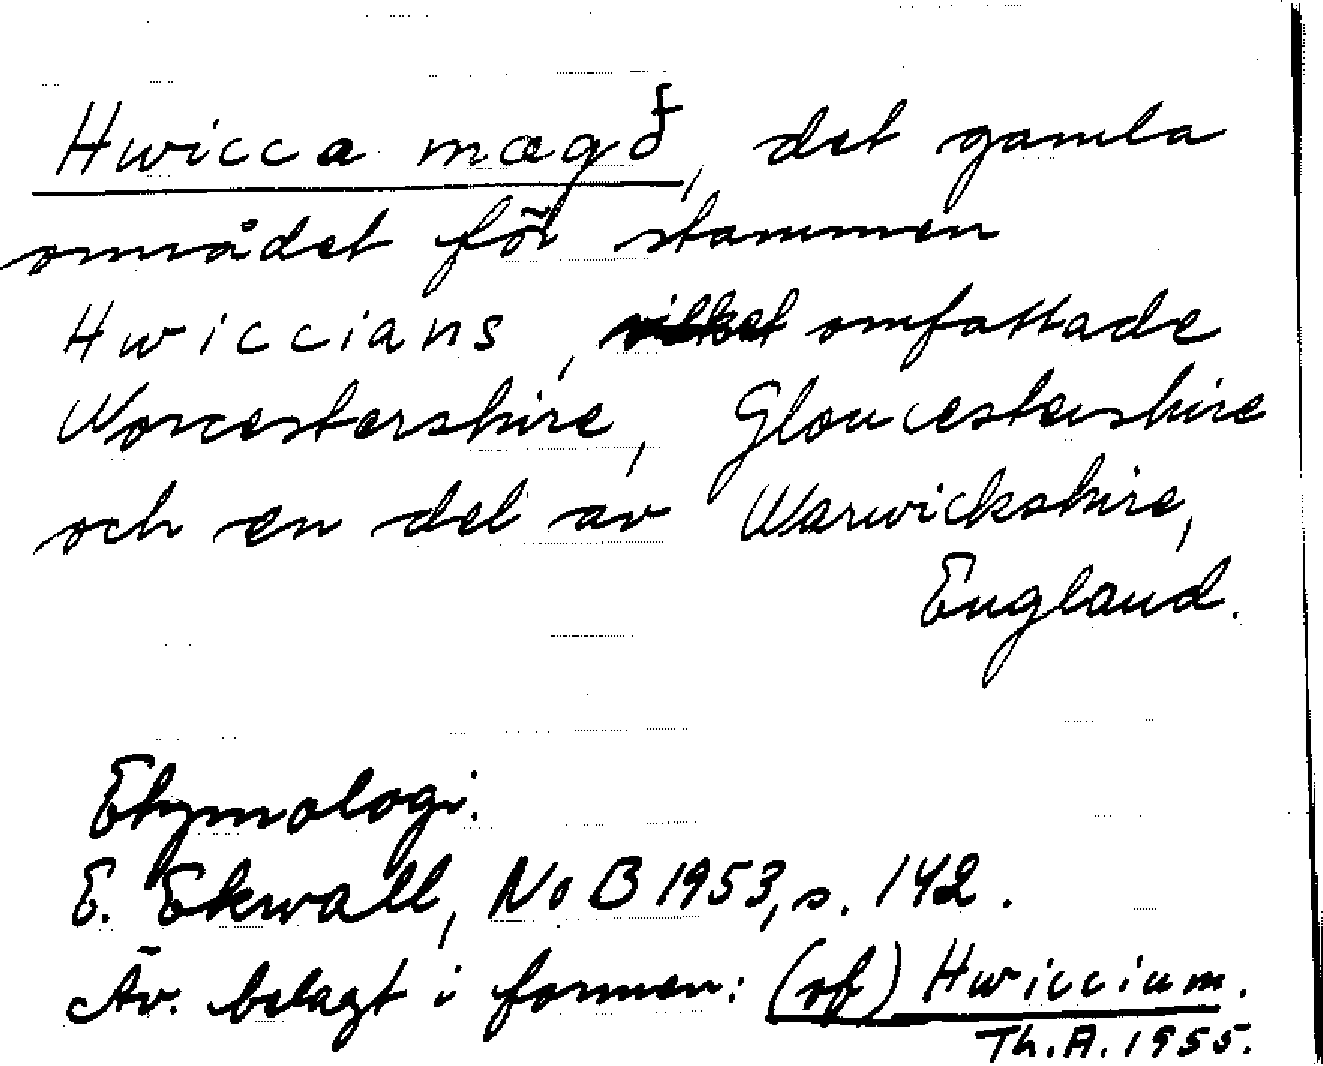 Hwicca mægð, det gamla
området för stammen
Hwiccians, omfattade
Worcestershire, Gloucestershire
och en del av Warwickshire,
England.
Etymologi.
E. Ekwall, NoB 1953, s. 142.
Äv. belagt i formen: (of) Hwiccium.
Th.A. 1955.